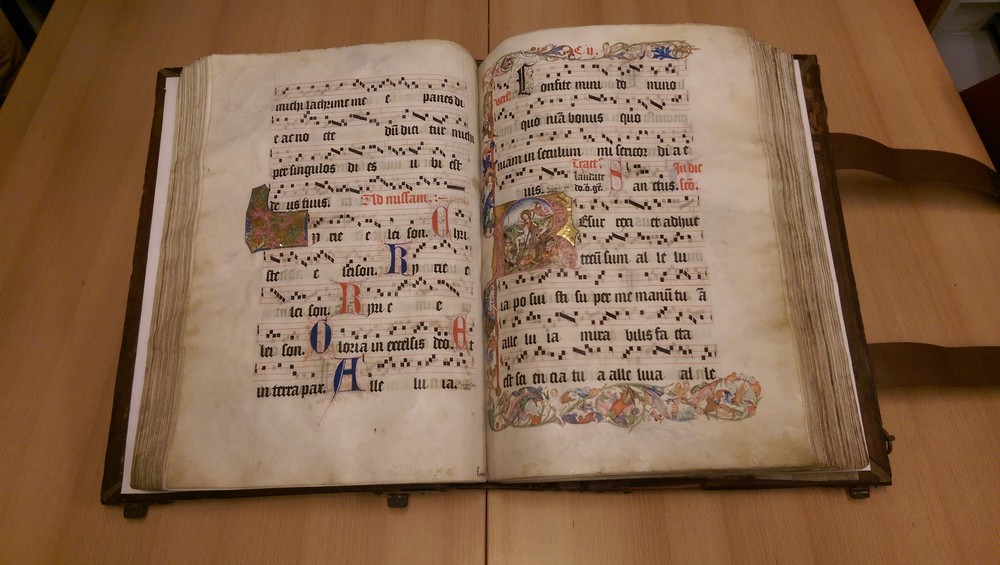 michi lachrime me e panes di
e ac no cte dū dici tur michi
per singulos di es u bi est
de us tuus. Ad missam.
y rie e lei son. Chri
ste e leison. Ky rie e
lei son. Kyri e e
lei son. Gloria in excelsis deo. Et
in terra pax. Alle lu ia.
C ij.
Confite mini do mino
quo niā bonus quo
niam in seculum mi serico: di a e
ius. Tract. laudate San ctus. In die
Resur rexi et adhuc
tecū sum al le lui
ia po sui sti su per me manū tu ā
alle lu ia mira bilis fa cta
est sci en cia tu a alle luia al le